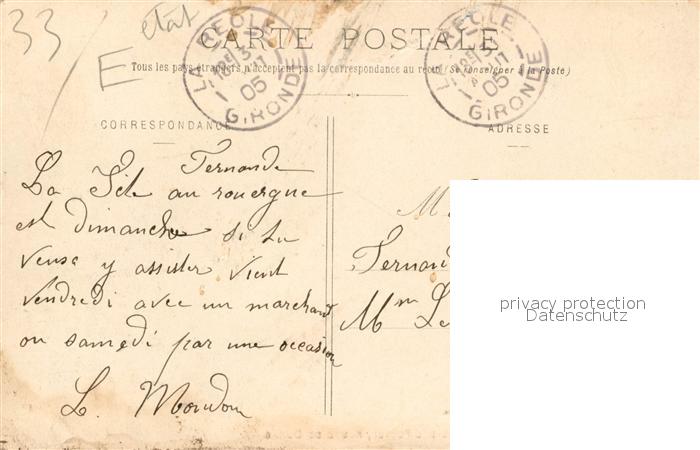 33
état
E
CARTE POSTALE
Tous les pays étrangers n'acceptent pas la correspondance au recto (Se renseigner à la Poste)
LA REOLE
05
GIRONDE
LA REOLE
05
GIRONDE
CORRESPONDANCE
ADRESSE
Fernande
La Fête au rouergue
est dimanche si tu
veux y assister vient
vendredi avec un marchand
ou samedi par une occasion
L.
M
Fernand
Mm Le
privacy protection
Datenschutz